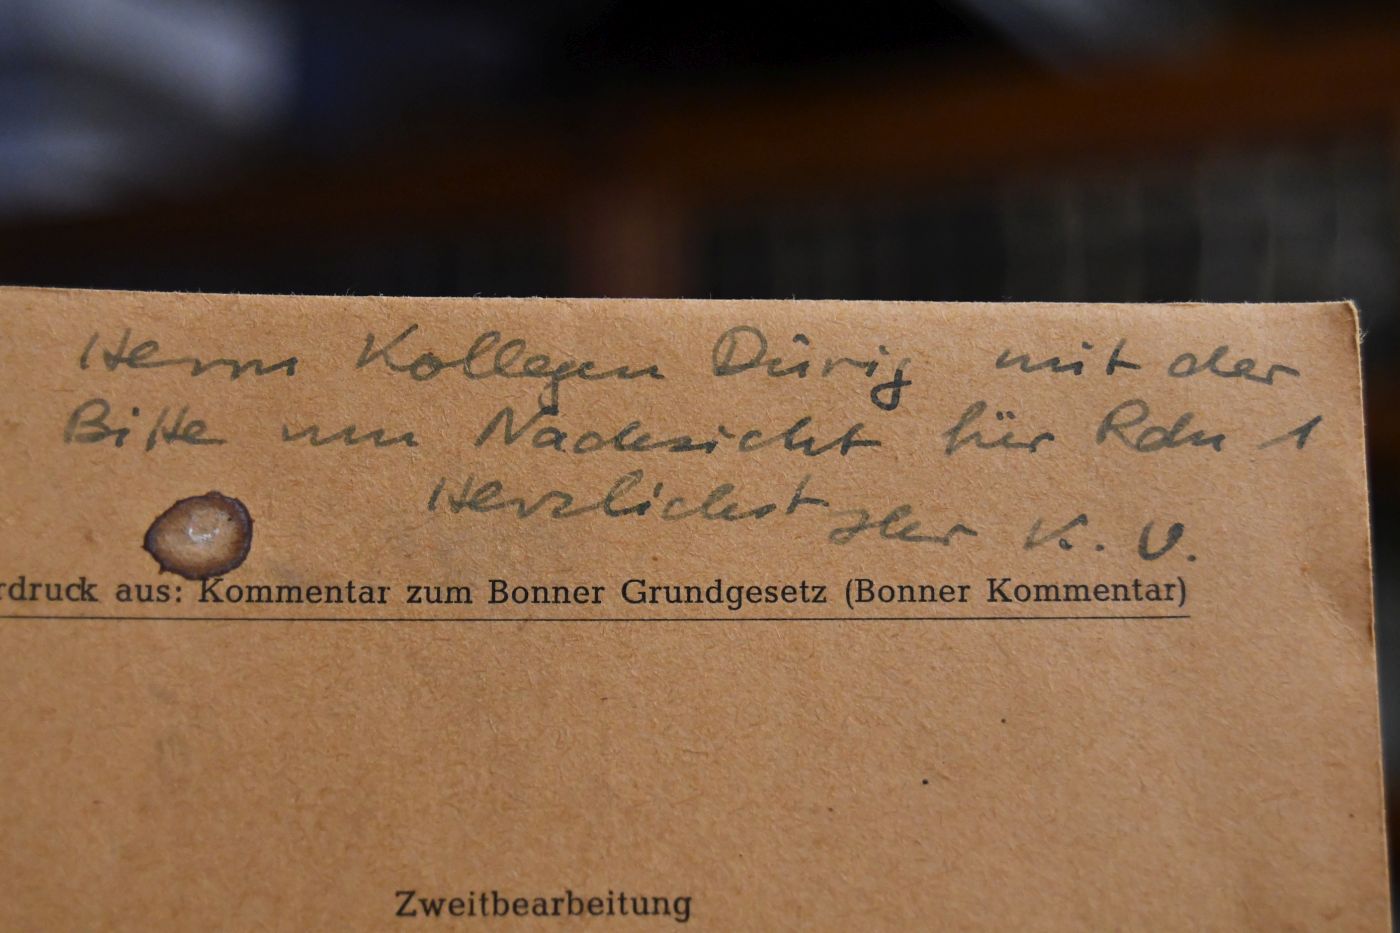 Herrn Kollegen Dürig mit der
Bitte um Nachsicht für Rdn 1
Herzlichst Ihr K. V.
rdruck aus: Kommentar zum Bonner Grundgesetz (Bonner Kommentar)
Zweitbearbeitung